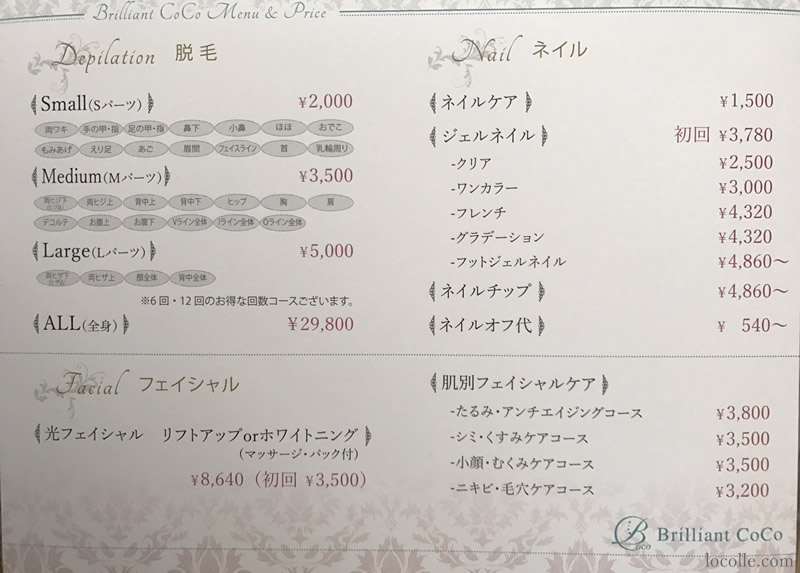 Brilliant CoCo Menu & Price
Depilation 脱毛
Small(Sパーツ) ¥2,000
両ワキ 手の甲・指 足の甲・指 鼻下 小鼻 ほほ おでこ
もみあげ えり足 あご 眉間 フェイスライン 首 乳輪周り
Medium(Mパーツ) ¥3,500
両ヒジ下 両ヒジ上 背中上 背中下 ヒップ 胸 肩
デコルテ お腹上 お腹下 Vライン全体 Iライン全体 Oライン全体
Large(Lパーツ) ¥5,000
両ヒザ下 両ヒザ上 顔全体 背中全体
※6回・12回のお得な回数コースございます。
ALL(全身) ¥29,800
Facial フェイシャル
光フェイシャル リフトアップorホワイトニング
(マッサージ・パック付)
¥8,640（初回 ¥3,500）
Nail ネイル
ネイルケア ¥1,500
ジェルネイル 初回 ¥3,780
-クリア ¥2,500
-ワンカラー ¥3,000
-フレンチ ¥4,320
-グラデーション ¥4,320
-フットジェルネイル ¥4,860〜
ネイルチップ ¥4,860〜
ネイルオフ代 ¥ 540〜
肌別フェイシャルケア
-たるみ・アンチエイジングコース ¥3,800
-シミ・くすみケアコース ¥3,500
-小顔・むくみケアコース ¥3,500
-ニキビ・毛穴ケアコース ¥3,200
Brilliant CoCo
locolle.com